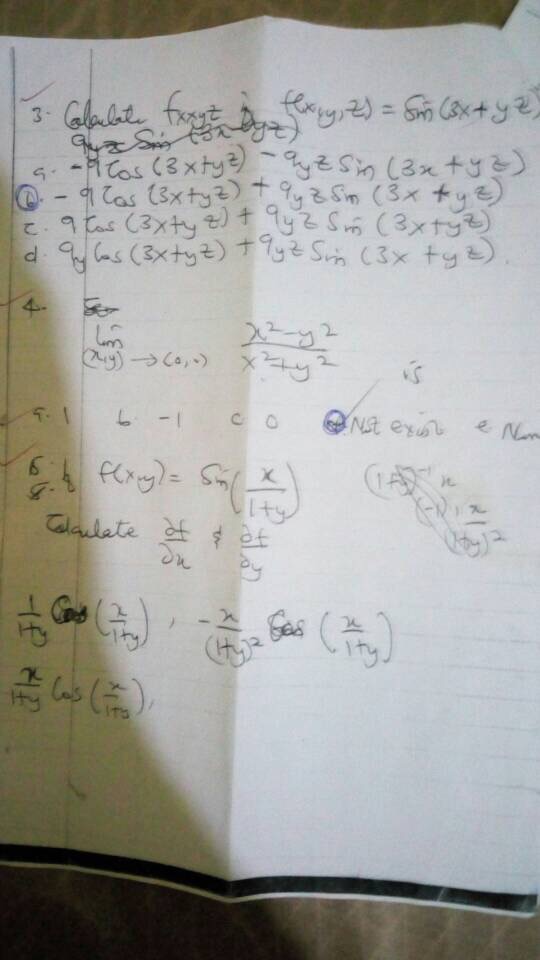 3. Calculate fxxyz f(x,y,z) = Sin(3x+yz)
9yz Sin (3x+yz)
a. -9 Cos (3x+yz) - 9yz Sin (3x + yz)
b. -9 Cos (3x+yz) + 9yz Sin (3x + yz)
c. 9 Cos (3x+yz) + 9yz Sin (3x+yz)
d. 9y Cos (3x+yz) + 9yz Sin (3x + yz).
4.
lim (x,y) → (0,0) x²-y² / x²+y² is
a. 1 b. -1 c. 0 d. Not exist e
5. If f(x,y) = Sin(x/1+y) (1+y)⁻¹ x
(-1), x/(1+y)²
Calculate ∂f/∂x & ∂f/∂y
1/1+y Cos (x/1+y), -x/(1+y)² Cos (x/1+y)
x/1+y Cos (x/1+y),